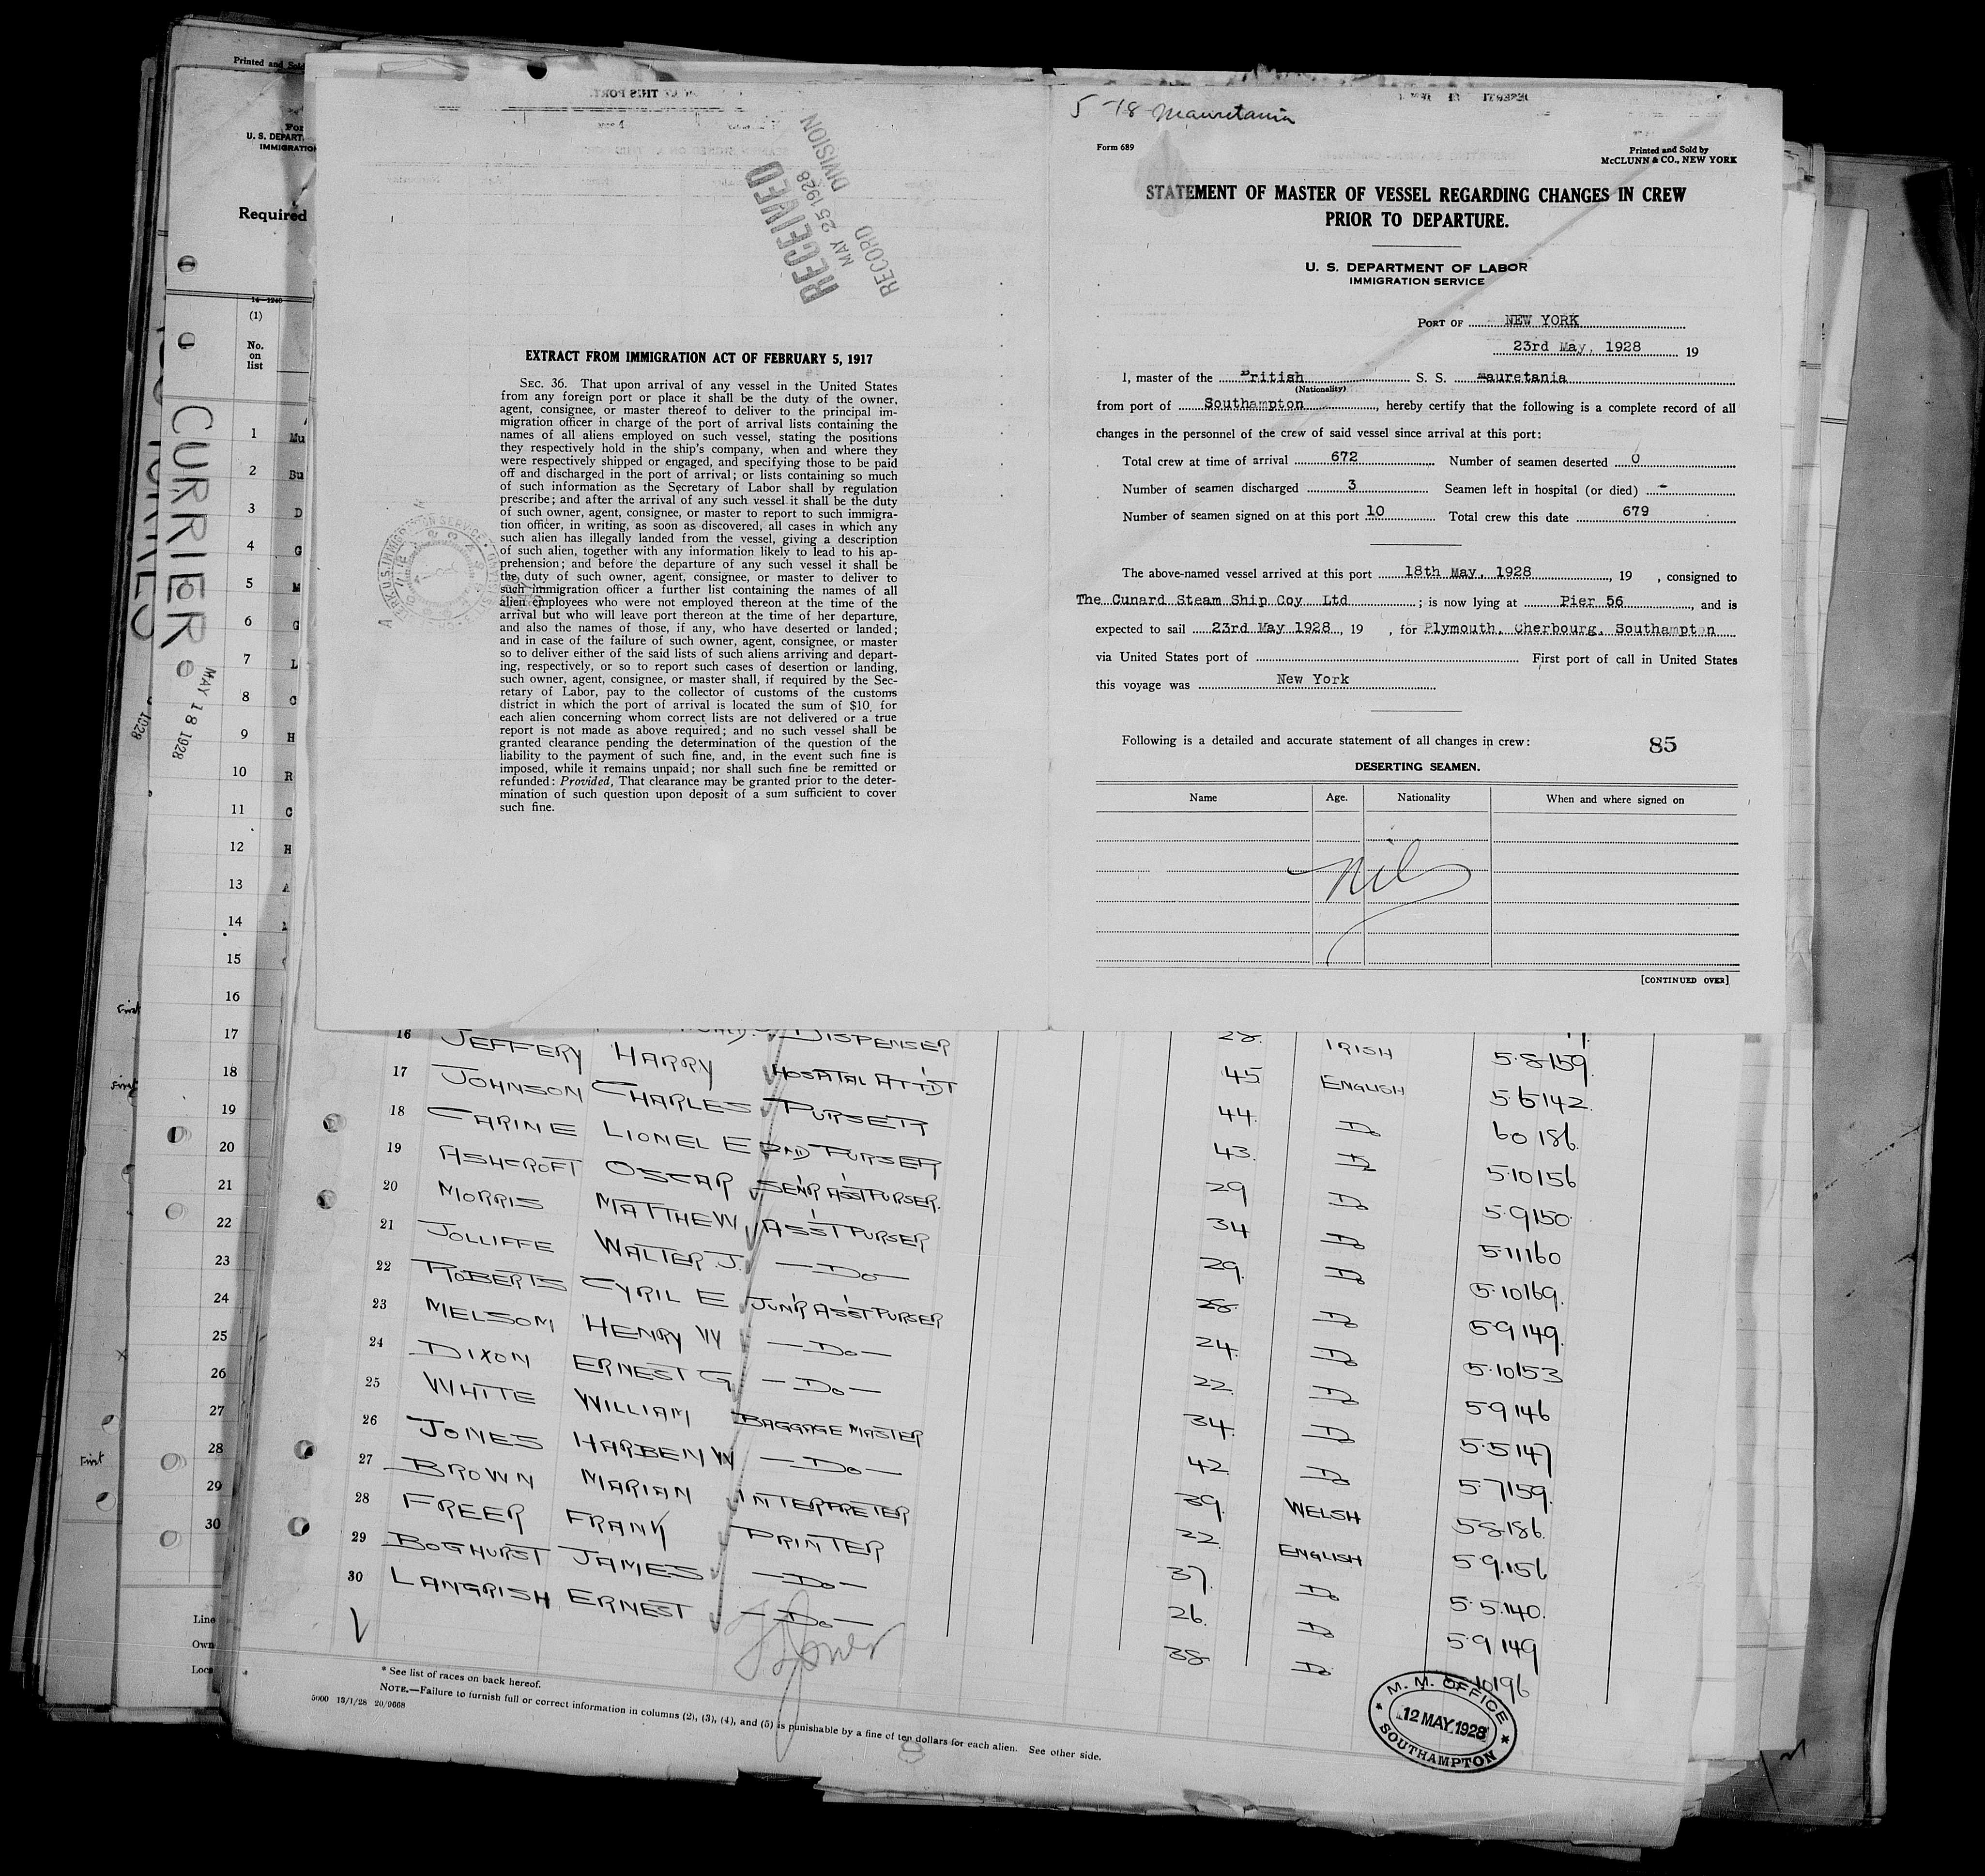 5-18 Mauretania
Form 689
Printed and Sold by
McCLUNN & CO., NEW YORK
STATEMENT OF MASTER OF VESSEL REGARDING CHANGES IN CREW
PRIOR TO DEPARTURE.
U. S. DEPARTMENT OF LABOR
IMMIGRATION SERVICE
PORT OF NEW YORK
23rd May, 1928 19
I, master of the British S. S. Mauretania
(Nationality)
from port of Southampton, hereby certify that the following is a complete record of all
changes in the personnel of the crew of said vessel since arrival at this port:
Total crew at time of arrival 672 Number of seamen deserted 0
Number of seamen discharged 3 Seamen left in hospital (or died) -
Number of seamen signed on at this port 10 Total crew this date 679
The above-named vessel arrived at this port 18th May, 1928, 19 , consigned to
The Cunard Steam Ship Coy Ltd ; is now lying at Pier 56, and is
expected to sail 23rd May 1928, 19 , for Plymouth, Cherbourg, Southampton
via United States port of First port of call in United States
this voyage was New York
Following is a detailed and accurate statement of all changes in crew: 85
DESERTING SEAMEN.
Name Age. Nationality When and where signed on
Nil
[CONTINUED OVER]
RECEIVED
MAY 25 1928
RECORD DIVISION
EXTRACT FROM IMMIGRATION ACT OF FEBRUARY 5, 1917
SEC. 36. That upon arrival of any vessel in the United States
from any foreign port or place it shall be the duty of the owner,
agent, consignee, or master thereof to deliver to the principal im-
migration officer in charge of the port of arrival lists containing the
names of all aliens employed on such vessel, stating the positions
they respectively hold in the ship's company, when and where they
were respectively shipped or engaged, and specifying those to be paid
off and discharged in the port of arrival; or lists containing so much
of such information as the Secretary of Labor shall by regulation
prescribe; and after the arrival of any such vessel it shall be the duty
of such owner, agent, consignee, or master to report to such immigra-
tion officer, in writing, as soon as discovered, all cases in which any
such alien has illegally landed from the vessel, giving a description
of such alien, together with any information likely to lead to his ap-
prehension; and before the departure of any such vessel it shall be
the duty of such owner, agent, consignee, or master to deliver to
such immigration officer a further list containing the names of all
alien employees who were not employed thereon at the time of the
arrival but who will leave port thereon at the time of her departure,
and also the names of those, if any, who have deserted or landed;
and in case of the failure of such owner, agent, consignee, or master
so to deliver either of the said lists of such aliens arriving and depart-
ing, respectively, or so to report such cases of desertion or landing,
such owner, agent, consignee, or master shall, if required by the Sec-
retary of Labor, pay to the collector of customs of the customs
district in which the port of arrival is located the sum of $10 for
each alien concerning whom correct lists are not delivered or a true
report is not made as above required; and no such vessel shall be
granted clearance pending the determination of the question of the
liability to the payment of such fine, and, in the event such fine is
imposed, while it remains unpaid; nor shall such fine be remitted or
refunded: Provided, That clearance may be granted prior to the deter-
mination of such question upon deposit of a sum sufficient to cover
such fine.
Printed and Sold
U. S. DEPART
IMMIGRATION
Required
14-1240
(1)
No.
on
list
CURRIER
MAY 18 1928
1928
1 Mu
2 Su
3 D
4 G
5 M
6 G
7 L
8 C
9 H
10 R
11 C
12 H
13 A
14
15
16
17
18
19
20
21
22
23
24
25
26
27
28
29
30
First
First
First
Line
Own
Loca
16 DISPENSER 28. IRISH 5.8 159.
JEFFERY HARRY HOSPITAL ATT'DT 45 ENGLISH 5 6 142.
17 JOHNSON CHARLES PURSER 44. Do 6 0 186
18 CARINE LIONEL E 2ND PURSER 43. Do 5.10 156
19 ASHCROFT OSCAR SEN'R ASS'T PURSER. 29 Do 5.9 150
20 MORRIS MATTHEW ASS'T PURSER 34 Do 5.11 160
21 JOLLIFFE WALTER J. —Do— 29. Do 5.10 169.
22 ROBERTS CYRIL E JUN'R ASS'T PURSER 28. Do 5.9 149.
23 MELSOM HENRY W —Do— 24. Do 5.10 153
24 DIXON ERNEST G —Do— 22. Do 5 9 146
25 WHITE WILLIAM BAGGAGE MASTER 34. Do 5.5 147
26 JONES HARBEN W —Do— 42. Do 5.7 159.
27 BROWN MARIAN INTERPRETER 39. WELSH 5 8 186.
28 FREER FRANK PRINTER 22. ENGLISH 5 9.156
29 BOGHURST JAMES —Do— 37. Do 5.5.140.
30 LANGRISH ERNEST —Do— 26. Do 5.9 149
38 Do 10 196
* See list of races on back hereof.
NOTE.—Failure to furnish full or correct information in columns (2), (3), (4), and (5) is punishable by a fine of ten dollars for each alien. See other side.
5000 13/1/28 20/9668
M. M. OFFICE
12 MAY 1928
SOUTHAMPTON